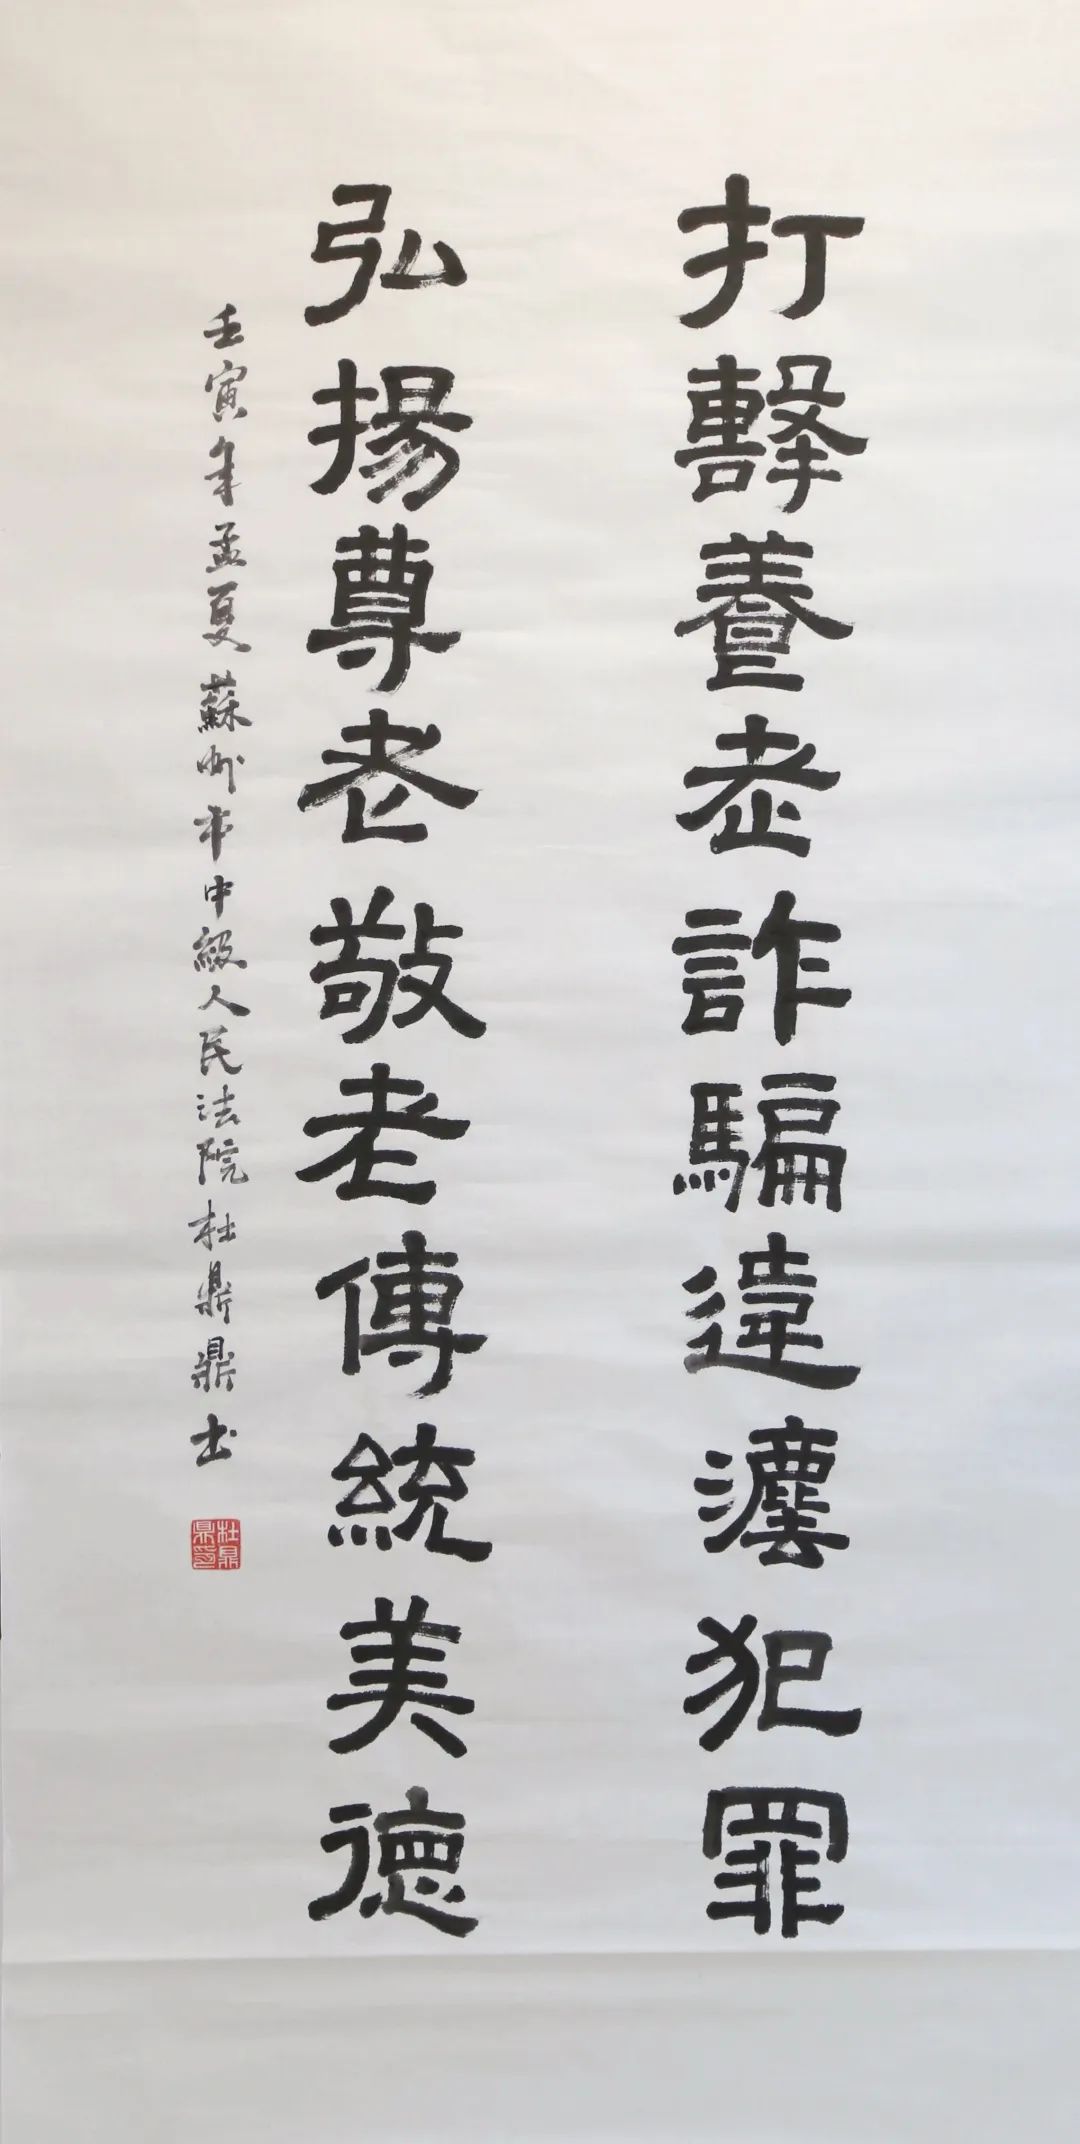 打擊養老詐騙違灋犯罪
弘揚尊老敬老傳統美德
壬寅年孟夏蘇州市中級人民法院杜鼎鼎书
杜鼎
鼎印